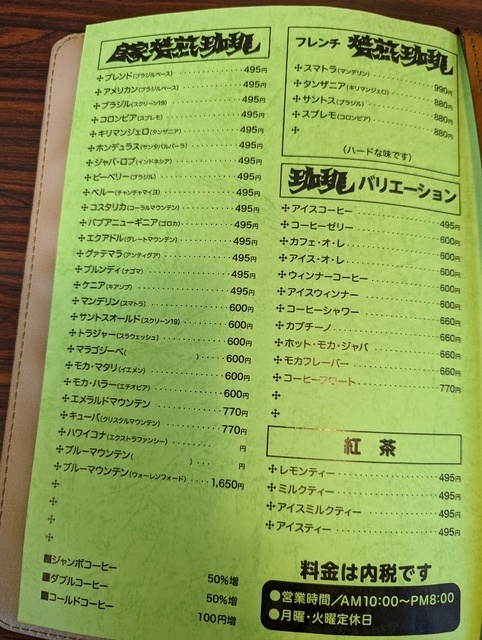 自家焙煎珈琲
✣ブレンド(ブラジルベース)‥‥‥495円
✣アメリカン(ブラジルベース)‥‥‥495円
✣ブラジル(スクリーン19)‥‥‥495円
✣コロンビア(スプレモ)‥‥‥495円
✣キリマンジェロ(タンザニア)‥‥‥495円
✣ホンデュラス(サンタバルバーラ)‥‥‥495円
✣ジャバ・ロブ(インドネシア)‥‥‥495円
✣ピーベリー(ブラジル)‥‥‥495円
✣ペルー(チャンチャマイヨ)‥‥‥495円
✣コスタリカ(コーラルマウンテン)‥‥‥495円
✣パプアニューギニア(ゴロカ)‥‥‥495円
✣エクアドル(グレートマウンテン)‥‥‥495円
✣グァテマラ(アンティグア)‥‥‥495円
✣ブルンディ(ナゴマ)‥‥‥495円
✣ケニア(キアンブ)‥‥‥495円
✣マンデリン(スマトラ)‥‥‥600円
✣サントスオールド(スクリーン19)‥‥‥600円
✣トラジャー(スラウェッシュ)‥‥‥600円
✣マラゴジーペ(　　　)‥‥‥600円
✣モカ・マタリ(イエメン)‥‥‥600円
✣モカ・ハラー(エチオピア)‥‥‥600円
✣エメラルドマウンテン‥‥‥770円
✣キューバ(クリスタルマウンテン)‥‥‥770円
✣ハワイコナ(エクストラファンシー)‥‥‥円
✣ブルーマウンテン(　　　)‥‥‥円
✣ブルーマウンテン(ウォーレンフォード)‥‥1,650円
✣
✣
✣
✣
■ジャンボコーヒー　50%増
■ダブルコーヒー　50%増
■コールドコーヒー　100円増
フレンチ 焙煎珈琲
✣スマトラ(マンデリン)‥‥‥990円
✣タンザニア(キリマンジェロ)‥‥‥880円
✣サントス(ブラジル)‥‥‥880円
✣スプレモ(コロンビア)‥‥‥880円
✣
(ハードな味です)
珈琲バリエーション
✣アイスコーヒー‥‥‥495円
✣コーヒーゼリー‥‥‥600円
✣カフェ・オ・レ‥‥‥600円
✣アイス・オ・レ‥‥‥600円
✣ウィンナーコーヒー‥‥‥600円
✣アイスウィンナー‥‥‥600円
✣コーヒーシャワー‥‥‥660円
✣カプチーノ‥‥‥660円
✣ホット・モカ・ジャバ‥‥‥660円
✣モカフレーバー‥‥‥660円
✣コーヒーフロート‥‥‥770円
✣
✣
紅茶
✣レモンティー‥‥‥495円
✣ミルクティー‥‥‥495円
✣アイスミルクティー‥‥‥495円
✣アイスティー‥‥‥495円
料金は内税です
●営業時間/AM10:00〜PM8:00
●月曜・火曜定休日